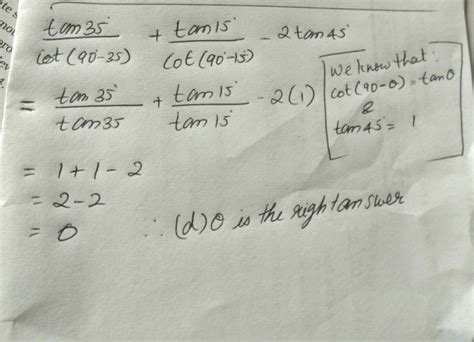 tan35° / cot(90°-35) + tan15° / cot(90°-15) - 2tan45°
= tan35° / tan35 + tan15° / tan15° - 2(1)
We know that:
cot(90-θ) = tanθ
&
tan45° = 1
= 1+1-2
= 2-2
= 0
∴ (d) 0 is the right answer